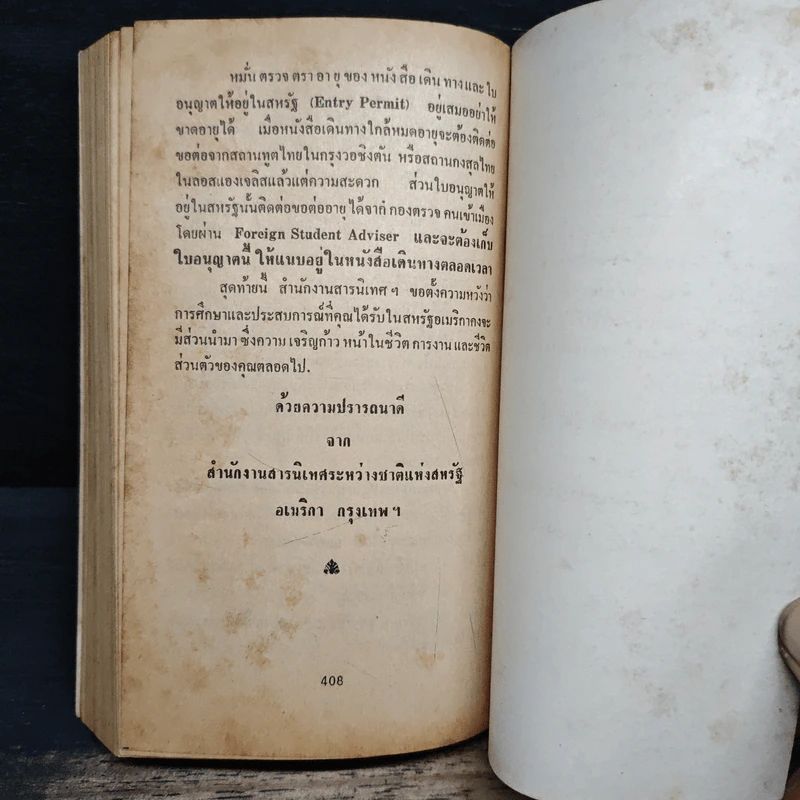 หมั่นตรวจตราอายุของหนังสือเดินทางและใบ
อนุญาตให้อยู่ในสหรัฐ (Entry Permit) อยู่เสมออย่าให้
ขาดอายุได้ เมื่อหนังสือเดินทางใกล้หมดอายุจะต้องติดต่อ
ขอต่อจากสถานทูตไทยในกรุงวอชิงตัน หรือสถานกงสุลไทย
ในลอสแองเจลิสแล้วแต่ความสะดวก ส่วนใบอนุญาตให้
อยู่ในสหรัฐนั้นติดต่อขอต่ออายุได้จาก กองตรวจคนเข้าเมือง
โดยผ่าน Foreign Student Adviser และจะต้องเก็บ
ใบอนุญาตนี้ ให้แนบอยู่ในหนังสือเดินทางตลอดเวลา
สุดท้ายนี้ สำนักงานสารนิเทศฯ ขอตั้งความหวังว่า
การศึกษาและประสบการณ์ที่คุณได้รับในสหรัฐอเมริกาคงจะ
มีส่วนนำมาซึ่งความเจริญก้าวหน้าในชีวิตการงานและชีวิต
ส่วนตัวของคุณตลอดไป.
ด้วยความปรารถนาดี
จาก
สำนักงานสารนิเทศระหว่างชาติแห่งสหรัฐ
อเมริกา กรุงเทพฯ
408